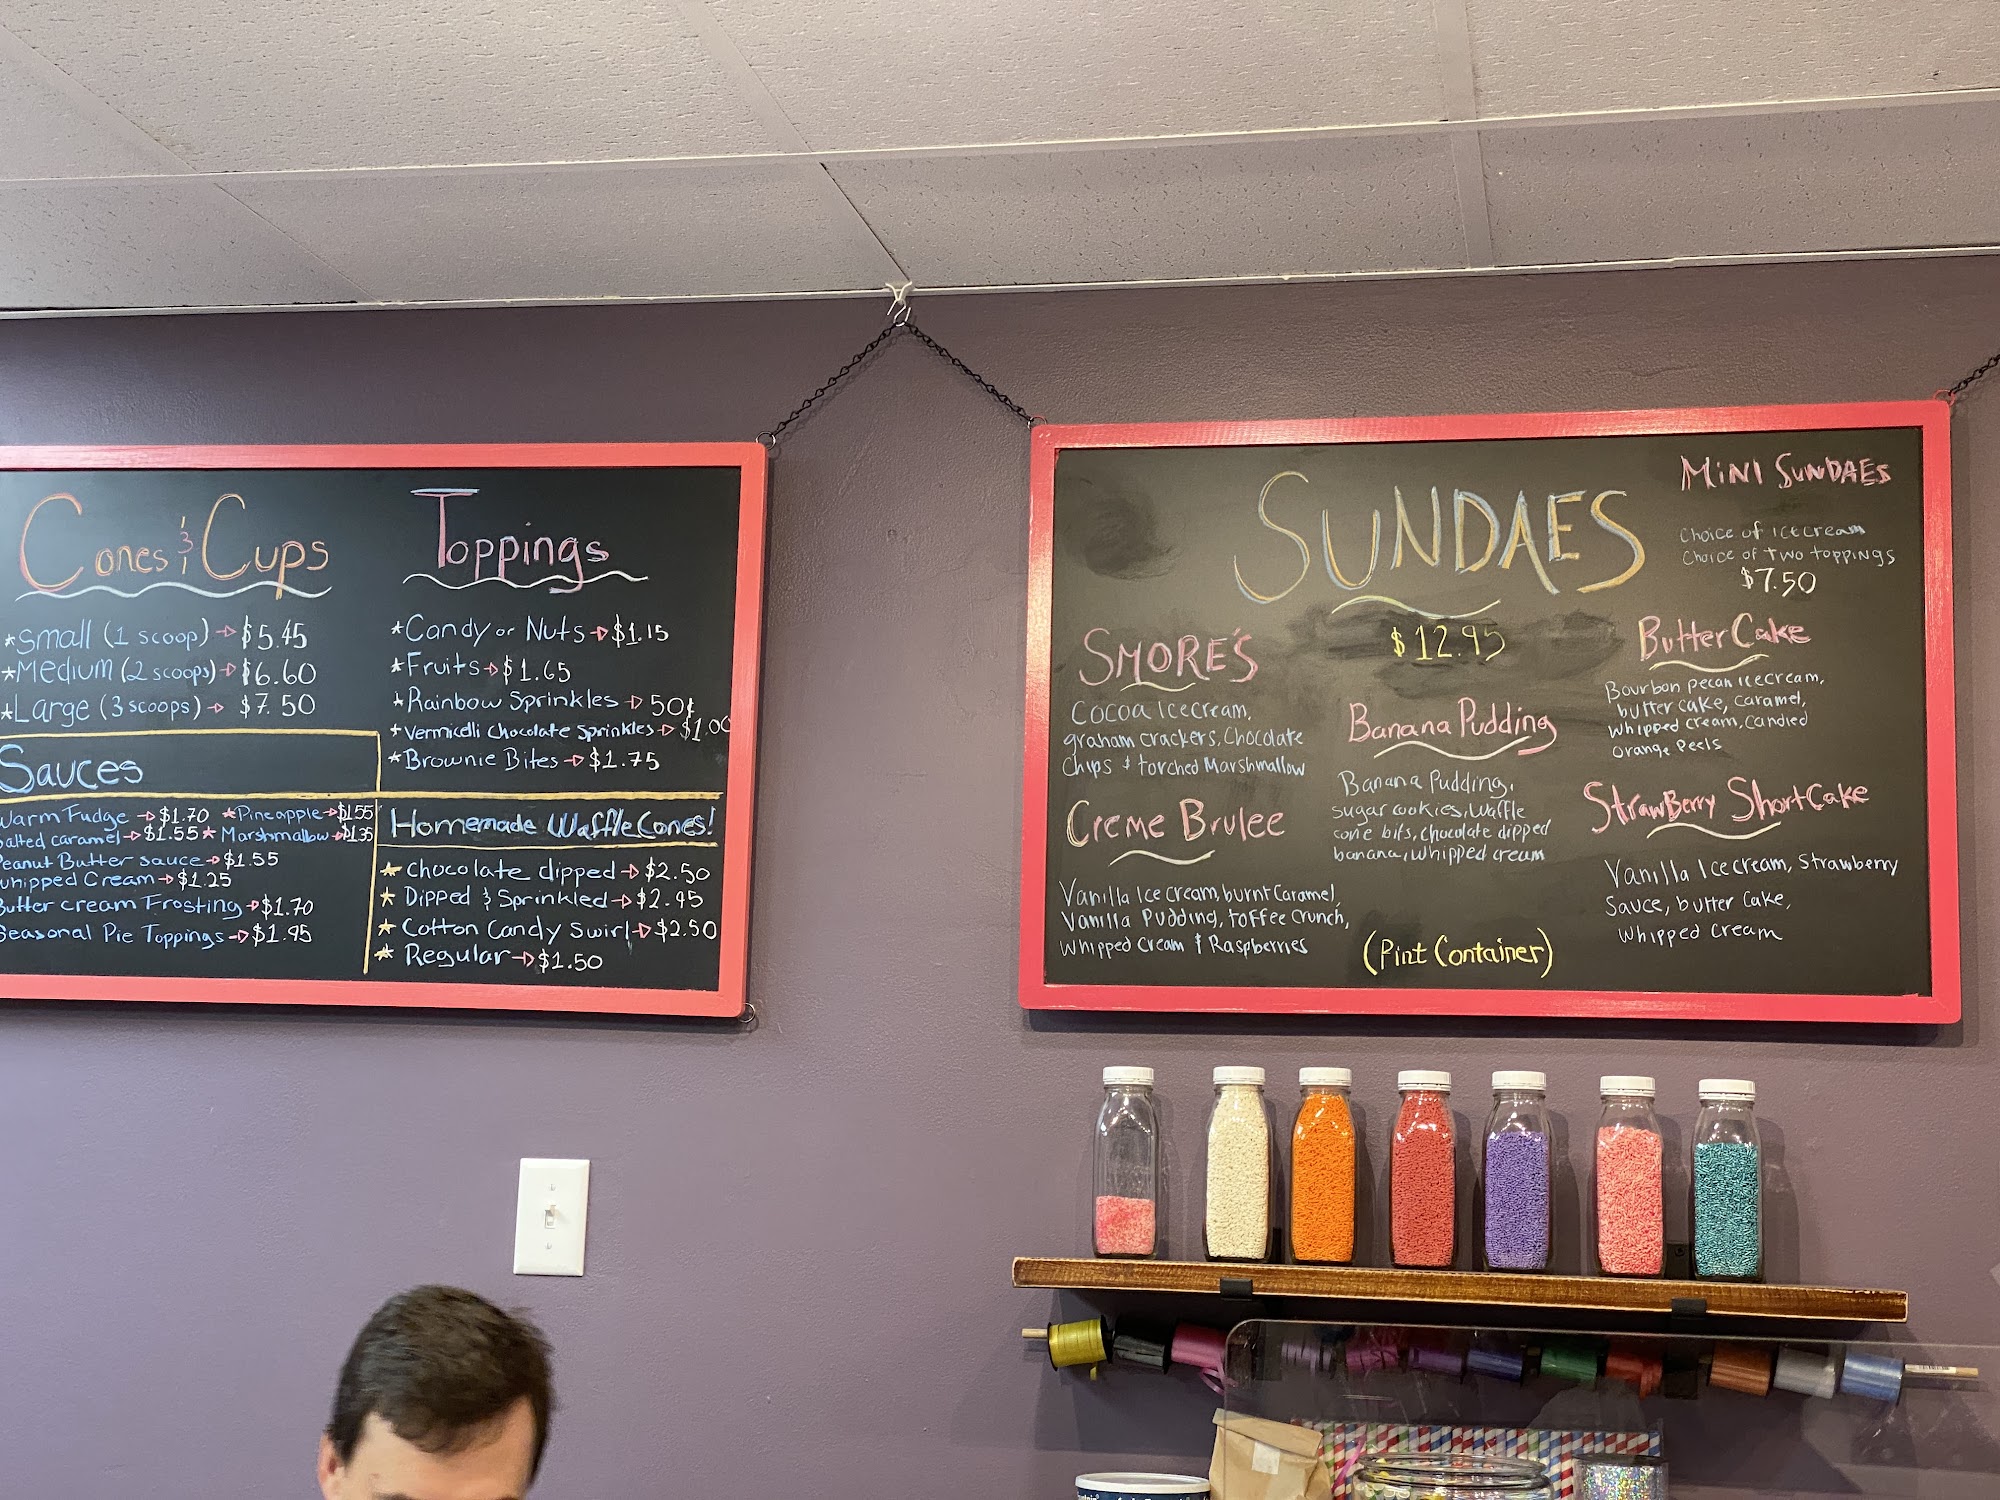 Cones & Cups
*Small (1 scoop) → $5.45
*Medium (2 scoops) → $6.60
*Large (3 scoops) → $7.50
Sauces
Warm Fudge → $1.70 *Pineapple → $1.55
Salted caramel → $1.55 * Marshmallow → $1.35
Peanut Butter sauce → $1.55
Whipped Cream → $1.25
Butter cream Frosting → $1.70
Seasonal Pie Toppings → $1.95
Toppings
*Candy or Nuts → $1.15
*Fruits → $1.65
*Rainbow Sprinkles → 50¢
*Vermicelli Chocolate Sprinkles → $1.00
*Brownie Bites → $1.75
Homemade Waffle Cones!
* Chocolate dipped → $2.50
* Dipped & Sprinkled → $2.95
* Cotton Candy Swirl → $2.50
* Regular → $1.50
SUNDAES
$12.95
MINI SUNDAES
Choice of icecream
Choice of two toppings
$7.50
SMORE'S
Cocoa Icecream,
graham crackers, Chocolate
Chips & torched Marshmallow
Creme Brulee
Vanilla Ice Cream, burnt Caramel,
Vanilla Pudding, toffee crunch,
Whipped Cream & Raspberries
Banana Pudding
Banana Pudding,
sugar cookies, Waffle
cone bits, chocolate dipped
banana, whipped cream
(Pint Container)
Butter Cake
Bourbon pecan icecream,
butter cake, caramel,
whipped cream, candied
orange peels
StrawBerry ShortCake
Vanilla Icecream, Strawberry
Sauce, butter cake,
whipped cream